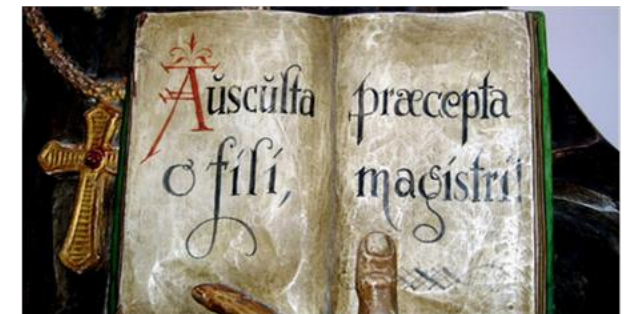 Aŭscŭlta
o fili,
præcepta
magistri!